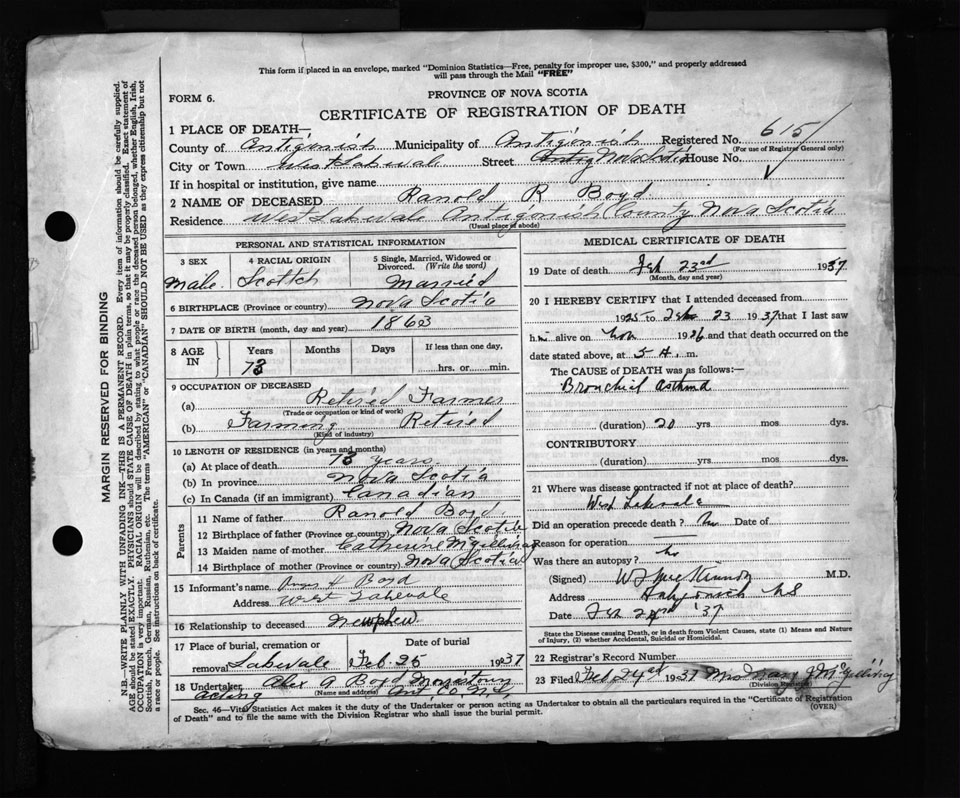 This form if placed in an envelope, marked "Dominion Statistics—Free, penalty for improper use, $300," and properly addressed
will pass through the Mail "FREE"
FORM 6.
PROVINCE OF NOVA SCOTIA
CERTIFICATE OF REGISTRATION OF DEATH
1 PLACE OF DEATH—
County of Antigonish Municipality of Antigonish Registered No. 615
(For use of Registrar General only)
City or Town West Lakevale Street Antig Nova Scotia House No.
If in hospital or institution, give name
2 NAME OF DECEASED Ranold R Boyd
Residence West Lakevale Antigonish County Nova Scotia
(Usual place of abode)
PERSONAL AND STATISTICAL INFORMATION
3 SEX 4 RACIAL ORIGIN 5 Single, Married, Widowed or
Divorced. (Write the word)
Male. Scottch Married
6 BIRTHPLACE (Province or country) Nova Scotia
7 DATE OF BIRTH (month, day and year) 1863
8 AGE IN Years Months Days If less than one day,
73 hrs. or min.
9 OCCUPATION OF DECEASED
(a) Retired Farmer
(Trade or occupation or kind of work)
(b) Farming Retired
(Kind of industry)
10 LENGTH OF RESIDENCE (in years and months)
(a) At place of death 73 years
(b) In province Nova Scotia
(c) In Canada (if an immigrant) Canadian
Parents
11 Name of father Ranold Boyd
12 Birthplace of father (Province or country) Nova Scotia
13 Maiden name of mother Catherine McGillivray
14 Birthplace of mother (Province or country) Nova Scotia
15 Informant's name Angus H Boyd
Address West Lakevale
16 Relationship to deceased Newphew
17 Place of burial, cremation or removal Date of burial
Lakevale Feb. 25 1937
18 Undertaker Alex A Boyd Morristown
acting (Name and address) Ant. Co. N.S.
MEDICAL CERTIFICATE OF DEATH
19 Date of death Feb 23rd 1937
(Month, day and year)
20 I HEREBY CERTIFY that I attended deceased from
1925 to Feb 23 1937 that I last saw
him alive on Nov 1926 and that death occurred on the
date stated above, at 5 A. m.
The CAUSE of DEATH was as follows:—
Bronchial Asthma
(duration) 20 yrs. mos. dys.
CONTRIBUTORY
(duration) yrs. mos. dys.
21 Where was disease contracted if not at place of death?
West Lakevale
Did an operation precede death? No Date of
Reason for operation —
Was there an autopsy? No
(Signed) M.D.
Address Antigonish NS
Date Feb 24 '37
State the Disease causing Death, or in death from Violent Causes, state (1) Means and Nature
of Injury, (2) whether Accidental, Suicidal or Homicidal.
22 Registrar's Record Number
23 Filed Feb 24th 1937 Mrs Mary J McGillivray
(Division Registrar)
Sec. 46—Vital Statistics Act makes it the duty of the Undertaker or person acting as Undertaker to obtain all the particulars required in the "Certificate of Registration
of Death" and to file the same with the Division Registrar who shall issue the burial permit.
(OVER)
MARGIN RESERVED FOR BINDING
N.B.—WRITE PLAINLY WITH UNFADING INK—THIS IS A PERMANENT RECORD. Every item of information should be carefully supplied.
AGE should be stated EXACTLY. PHYSICIANS should STATE CAUSE OF DEATH in plain terms, so that it may be properly classified. Exact statement of
OCCUPATION is very important. RACIAL ORIGIN will be described by stating to what people or race the deceased person belonged, whether English, Irish,
Scottish, French, German, Russian, Ruthenian, etc. The terms "AMERICAN" or "CANADIAN" SHOULD NOT BE USED as they express citizenship but not
a race or people. See instructions on back of certificate.